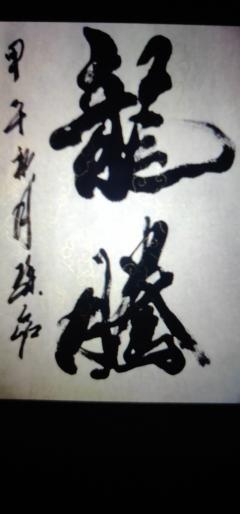 龍騰
甲午秋月